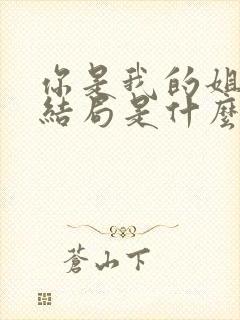 你是我的姐
結局是什麼
蒼山下